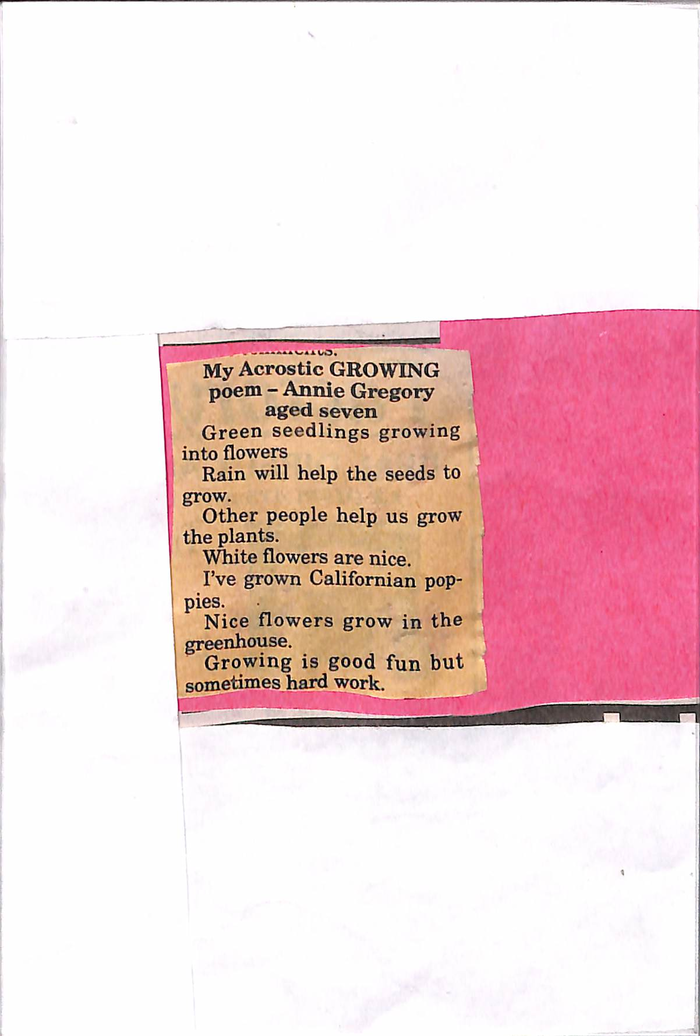 My Acrostic GROWING
poem – Annie Gregory
aged seven
Green seedlings growing
into flowers
Rain will help the seeds to
grow.
Other people help us grow
the plants.
White flowers are nice.
I've grown Californian pop-
pies.
Nice flowers grow in the
greenhouse.
Growing is good fun but
sometimes hard work.